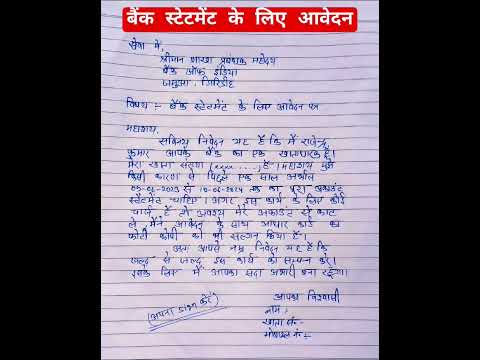 बैंक स्टेटमेंट के लिए आवेदन
सेवा में,
श्रीमान शाखा प्रबंधक महोदय
बैंक ऑफ इंडिया
जमुआ, गिरिडीह
विषय :- बैंक स्टेटमेंट के लिए आवेदन पत्र
महाशय,
सविनय निवेदन यह है कि मैं राजेन्द्र
कुमार आपके बैंक का एक खाताधारक हूँ।
मेरा खाता संख्या (xxxx ....) है। महाशय मुझे
किसी कारण से पिछले एक साल अर्थात
से 10-06-2024 तक का पूरा अकाउंट
स्टेटमेंट चाहिए। अगर इस कार्य के लिए कोई
चार्ज है तो अवश्य मेरे अकाउंट से काट
ले मैंने आवेदन के साथ आधार कार्ड का
फोटो कॉपी को भी संलग्न किया है।
अतः आपसे नम्र निवेदन यह है कि
जल्द से जल्द इस कार्य को सम्पन्न करें।
इसके लिए मैं आपका सदा आभारी बना रहूँगा।
(अपना sign करें)
आपका विश्वासी
नाम:-
खाता नं०-
मोबाइल नं०:-